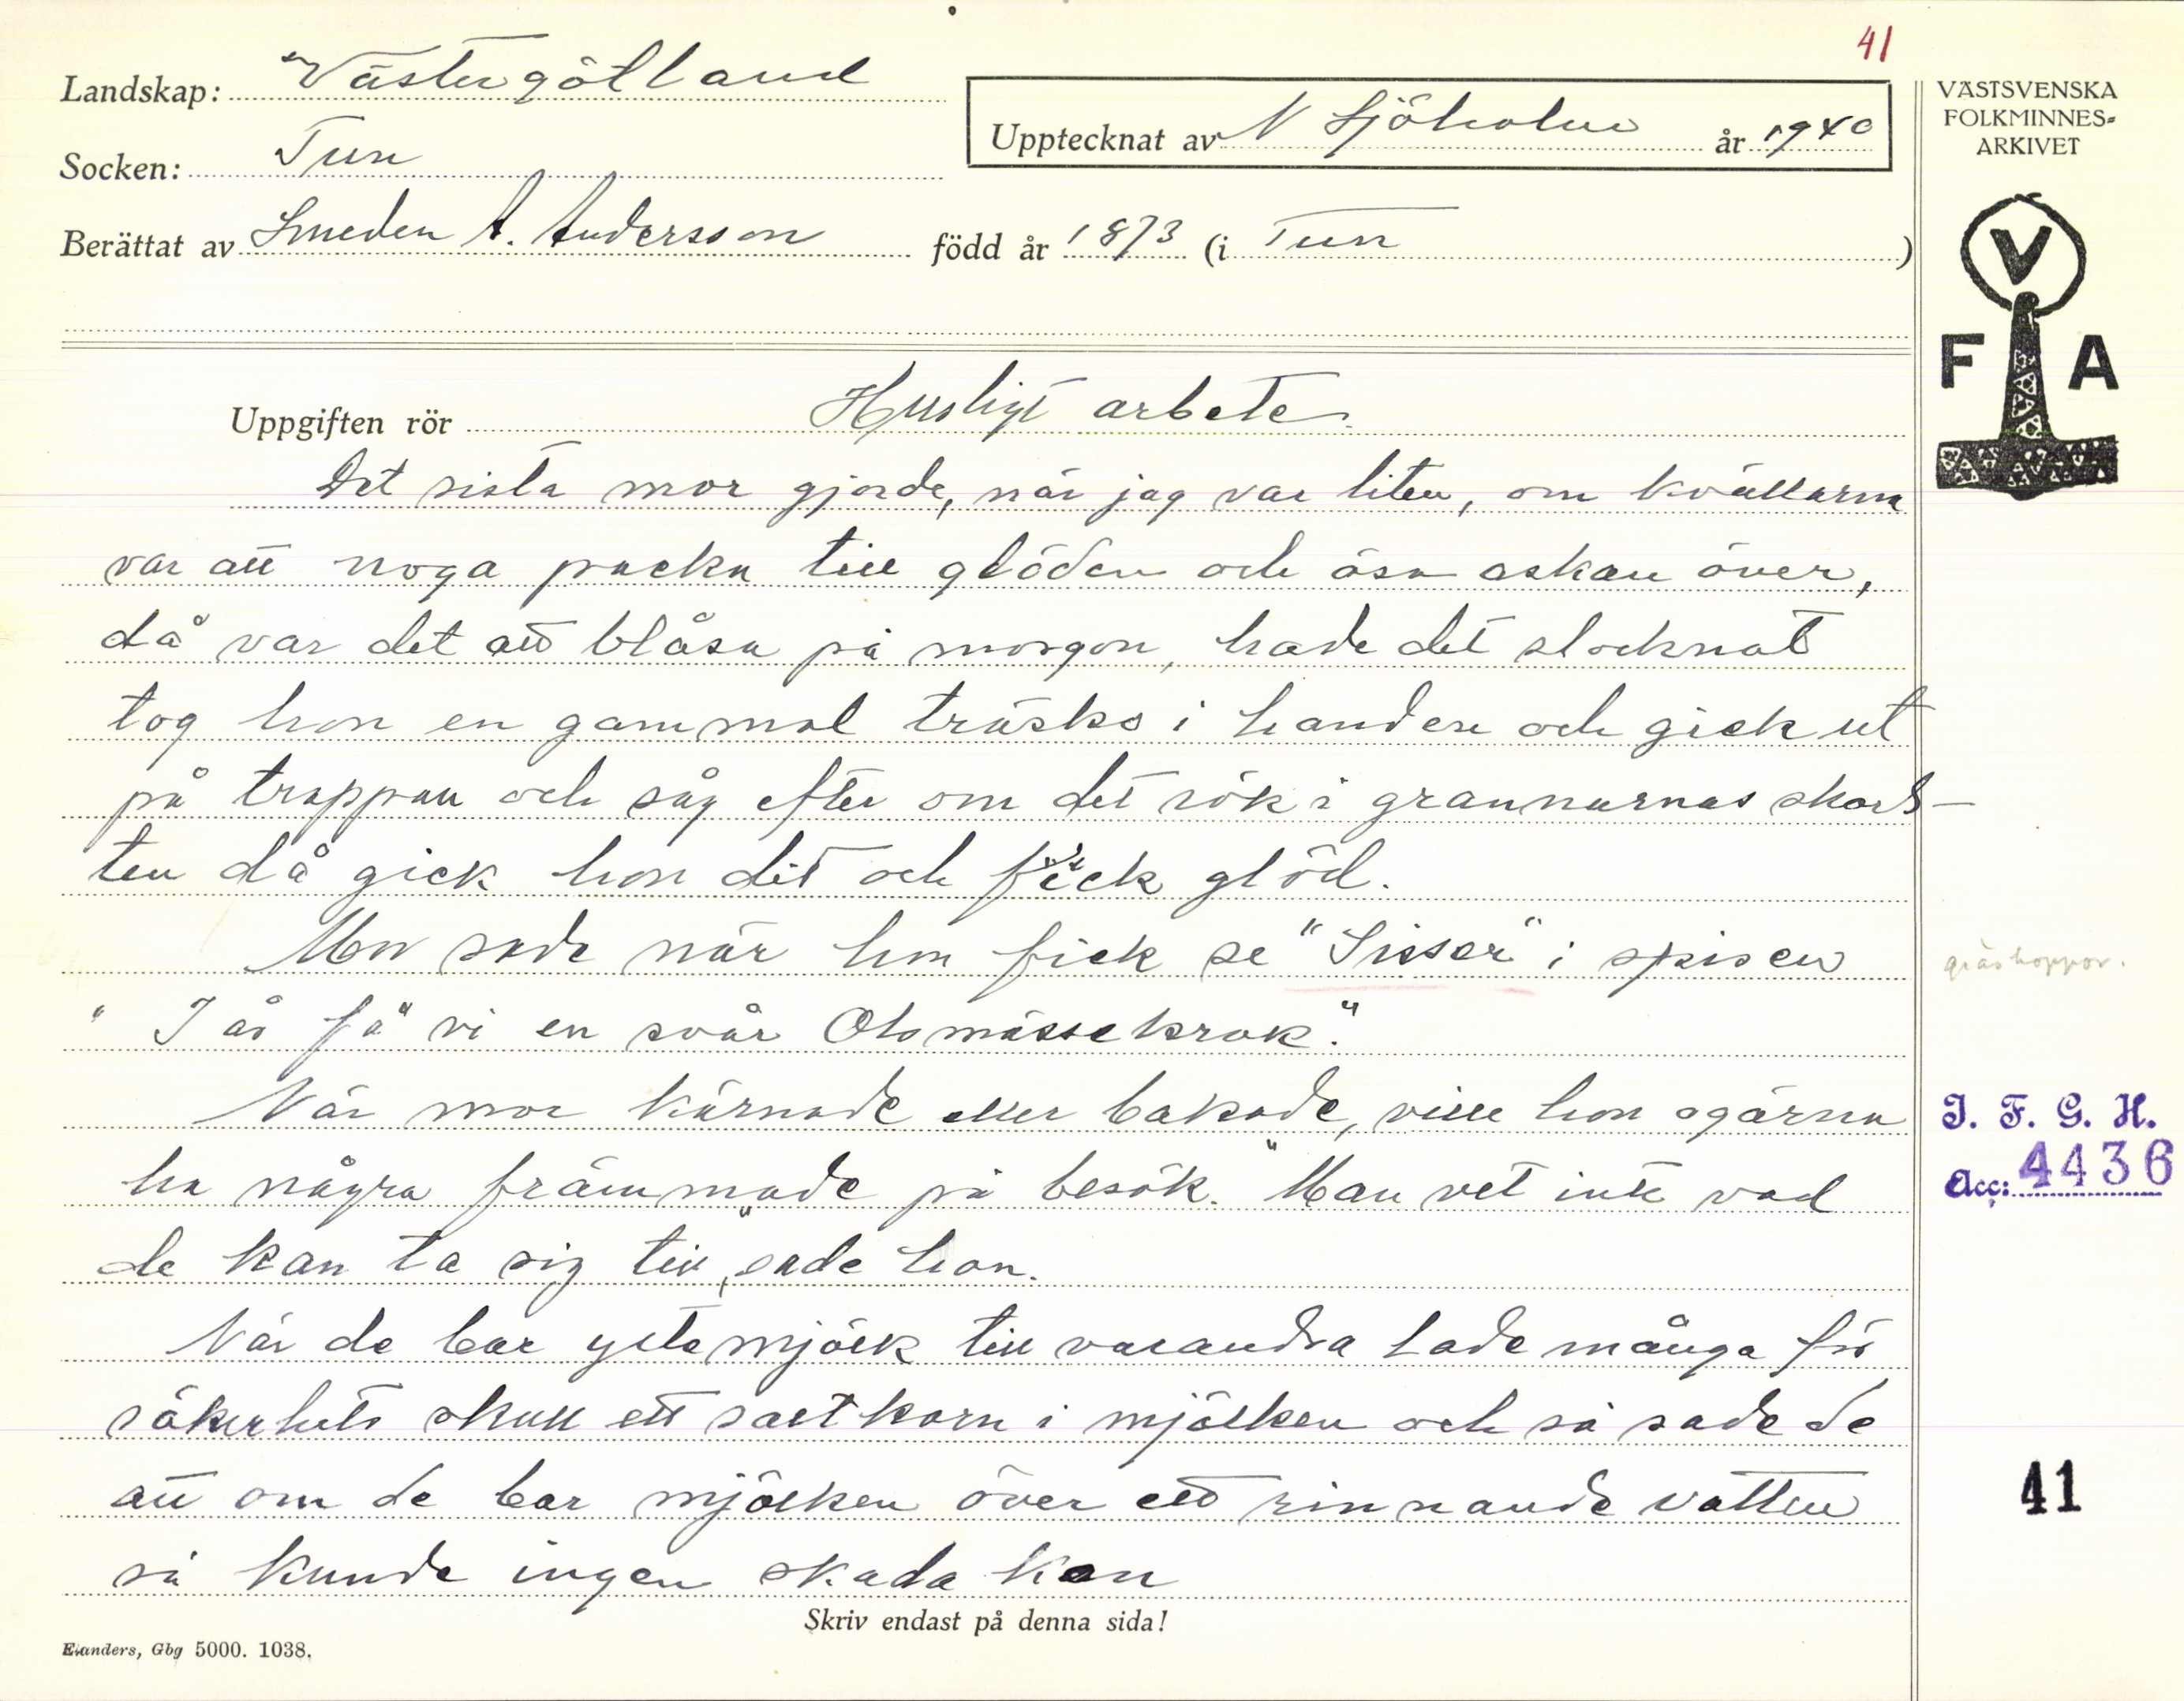 41
Landskap: Västergötland
Upptecknat av N Sjöholm år 1940
Socken: Tun
Berättat av Smeden A. Andersson född år 1873 (i Tun )
VÄSTSVENSKA
FOLKMINNES-
ARKIVET
V
F A
Uppgiften rör Husligt arbete.
Det sista mor gjorde, när jag var liten, om kvällarna
var att noga packa till glöden och ösa askan över,
då var det att blåsa på morgon, hade det slocknat
tog hon en gammal träsko i handen och gick ut
på trappan och såg efter om det rök i grannarnas skors-
ten då gick hon dit och fick glöd.
Mor sade när hon fick se "Sisser" i spisen
gräshoppor.
" I år få vi en svår Olsmässekrok".
När mor kärnade eller bakade, ville hon ogärna
ha några främmade på besök. "Man vet inte vad
de kan ta sig till," sade hon.
När de bar ystemjölk till varandra lade många för
säkerhets skull ett saltkorn i mjölken och så sade de
att om de bar mjölken över ett rinnande vatten
så kunde ingen skada kon
I. F. G. H.
Acc: 4436
41
Skriv endast på denna sida!
Elanders, Gbg 5000. 1038.